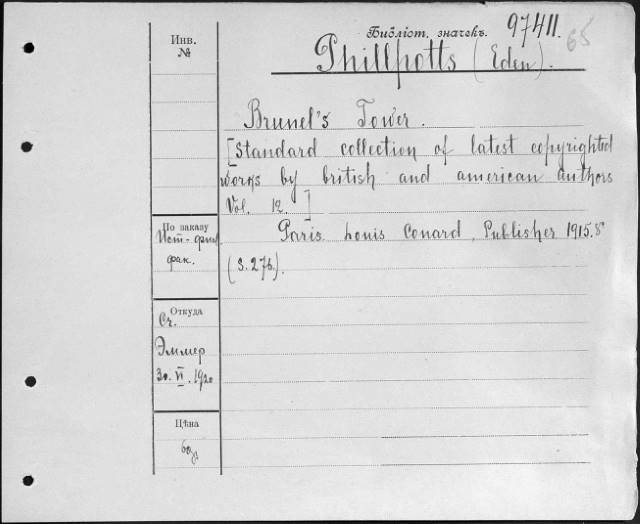 Библіот. значекъ. 97411.
65
Phillpotts (Eden).
Инв.
№
Brunel's Tower.
[Standard collection of latest copyrighted
works by british and american authors
Vol. 12.]
Paris. Louis Conard, Publisher 1915. 8°
(S. 276.).
По заказу
Ист.-фил.
фак.
Откуда
Сч.
Эммер
30. VI. 1920
Цѣна